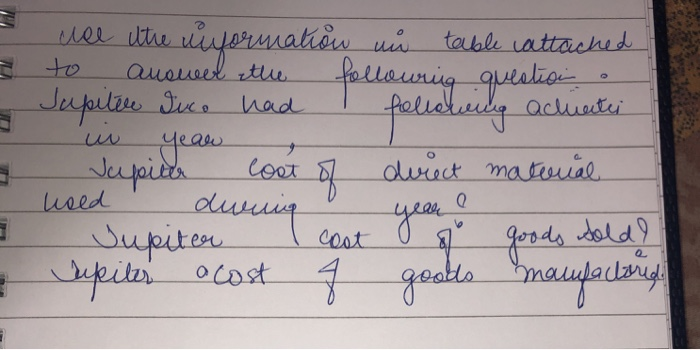 use the information in table attached
to answer the following question.
Jupiter Inc. had following activiti
in year,
Jupiter cost of direct material
used during year?
Jupiter cost of goods sold?
Jupiter cost of goods manufactured?